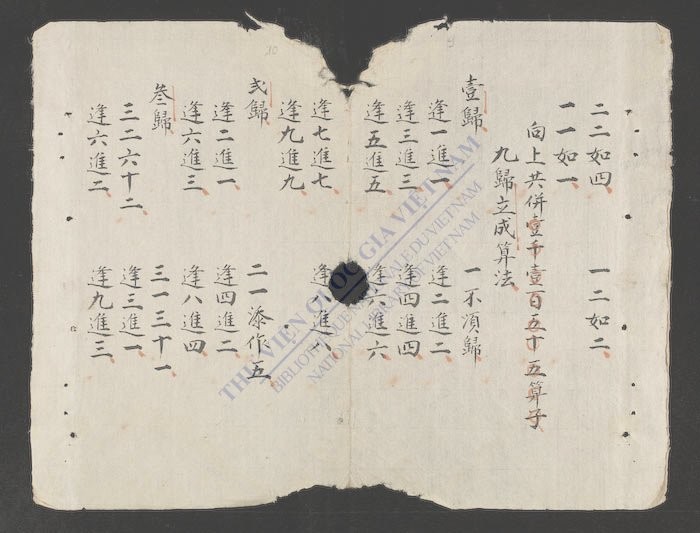 二二如四 一二如二
一一如一
向上共併壹千壹百五十五算子
九歸立成算法
壹歸 一不須歸
逢一進一 逢二進二
逢三進三 逢四進四
逢五進五 逢六進六
逢七進七 逢八進八
逢九進九
弍歸 二一添作五
逢二進一 逢四進二
逢六進三 逢八進四
叁歸 三一三十一
三二六十二 逢三進一
逢六進二 逢九進三
THƯ VIỆN QUỐC GIA VIỆT NAM
BIBLIOTHÈQUE NATIONALE DU VIETNAM
NATIONAL LIBRARY OF VIETNAM